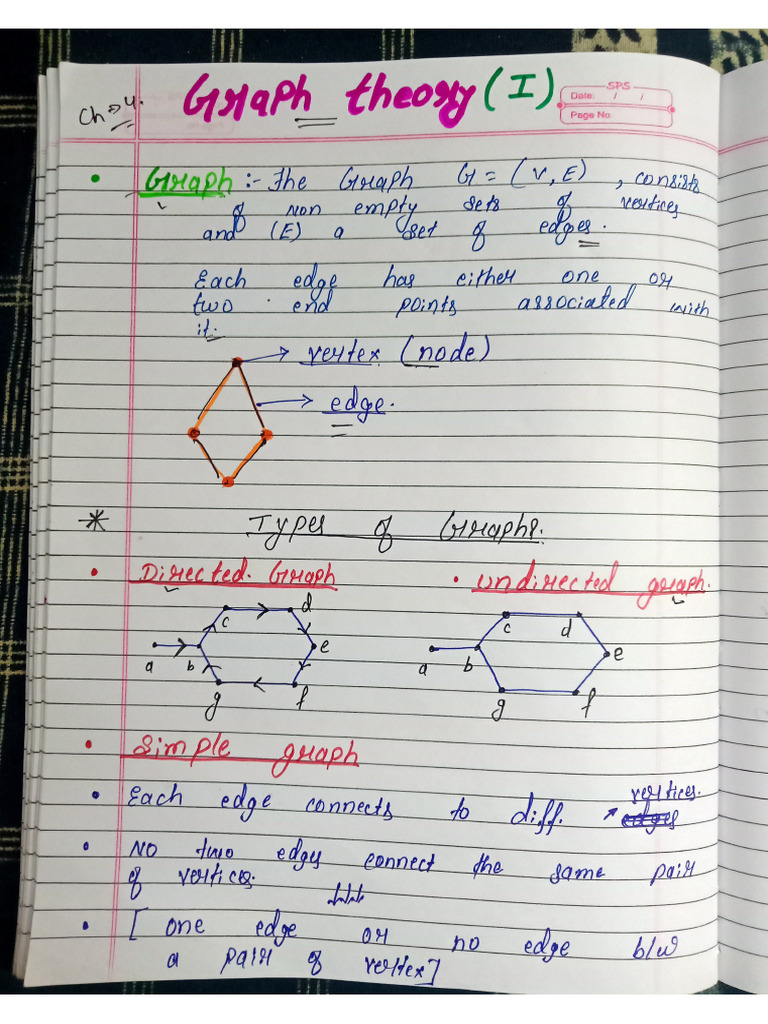 Ch → 4.
Graph theory (I)
SPS
Date: / /
Page No.
• Graph :- The Graph G = (V, E) , consists
of non empty sets of vertices
and (E) a set of edges.
Each edge has either one or
two end points associated with
it.
→ vertex (node)
→ edge.
* Types of Graphs.
• Directed Graph • undirected graph.
c d c d
a b e a b e
g f g f
• Simple graph
• Each edge connects to diff. vertices.
edges
• No two edges connect the same pair
of vertices.
• [ one edge or no edge b/w
a pair of vertex]